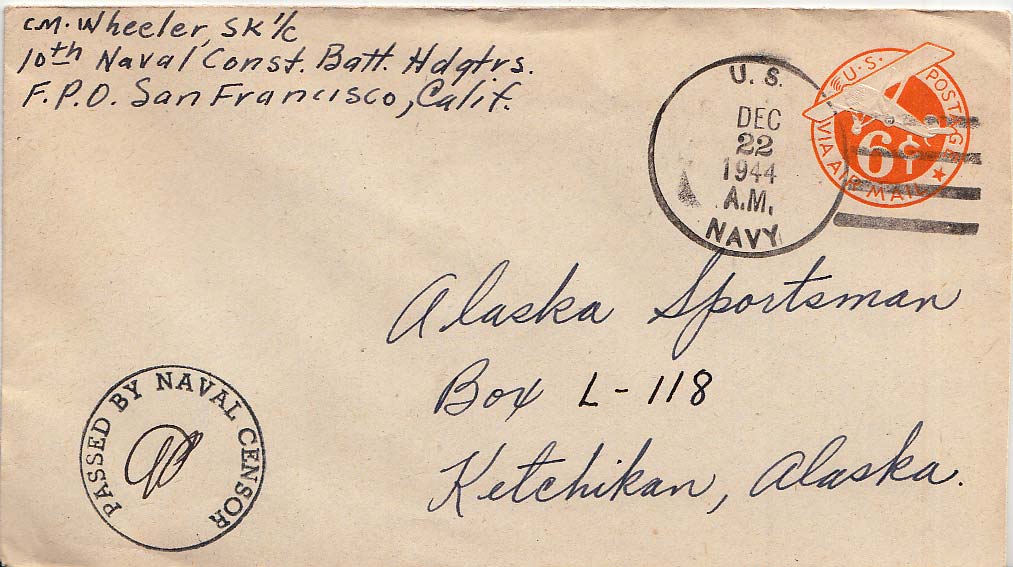 C.M. Wheeler, SK 1/c
10th Naval Const. Batt. Hdqtrs.
F.P.O. San Francisco, Calif.
U.S.
DEC
22
1944
A.M.
NAVY
U.S. POSTAGE
6¢
VIA AIR MAIL
Alaska Sportsman
Box L-118
Ketchikan, Alaska.
PASSED BY NAVAL CENSOR